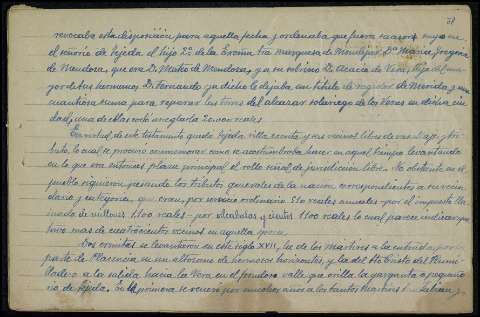 31
revocaba esta disposición para aquella fecha y ordenaba que fuera sucesora suya en
el señorio de Tejeda el hijo 2º. de la Excma Sra marquesa de Mondejar Dª Maria Gregoria
de Mendoza, que era D. Matio de Mendoza, y a su sobrino D. Acacio de Vera, hijo del ma-
yor de sus hermanos, D. Fernando ya dicho le dejaba su titulo de regidor de Merida y una
cuantiosa suma para reparar las torres del alcazar solariego de los Veras en dicha ciu-
dad, una de las cuales arreglarla 20000 reales
En virtud de este testamento quedo Tejeda, villa exenta y sus vecinos libres de vasallaje y tri-
buto, lo cual se procuro conmemorar como se acostumbraba hacer en aquel tiempo levantando
en lo que era entonces plaza principal el rollo señal de jurisdicción libre. No obstante en el
pueblo siguieron pesando los tributos generales de la nacion correspondientes a su vecin-
dario y categoria, que eran, por servicio ordinario 510 reales anuales - por el impuesto lla-
mado de millones 1.100 reales - por alcabalas y cientos 1100 reales lo cual parece indicar que
hubo mas de cuatrocientos vecinos en aquella epoca.
Dos ermitas se levantaron en este siglo XVII, la de los Martires a la entrada por la
parte de Plasencia en un altozano de hermosos horizontes y la del Sto Cristo del Humi-
lladero a la salida hacia la Vera en el frondoso valle que orilla la garganta o pequeño
rio de Tejeda. En la primera se venero por muchos años a los santos martires Fabian y